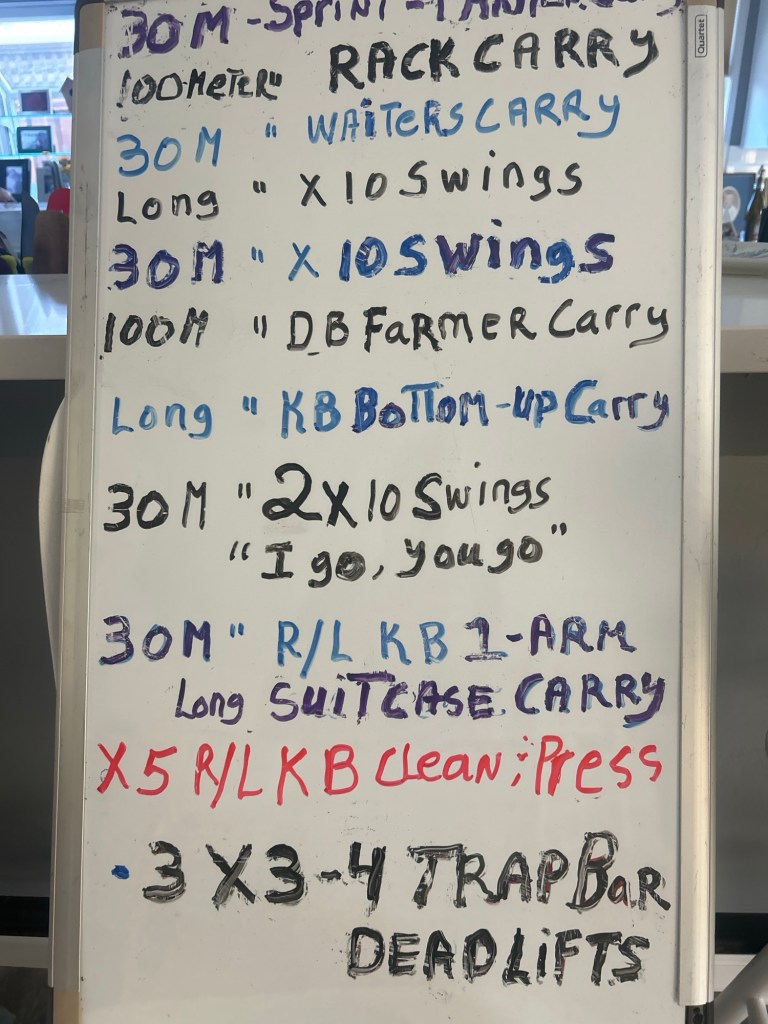 30M - Sprint -
100METER" RACK CARRY
30M " WAITERS CARRY
Long " X 10 Swings
30M " X 10 Swings
100M " DB FaRMER Carry
Long " KB BoTToM-UP Carry
30M " 2X10 Swings
"I go, you go"
30M " R/L KB 1-ARM
Long SUITCASE CARRY
X5 R/L KB Clean ; Press
• 3 X 3-4 TRAP BaR
DEADLiFTS
Quartet